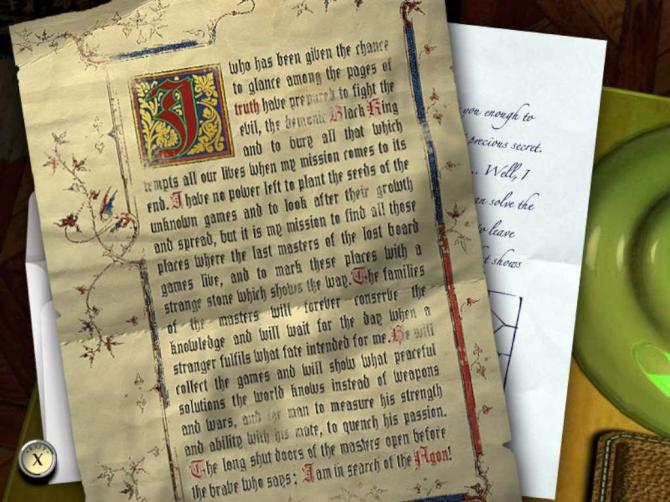 I who has been given the chance
to glance among the pages of
truth have prepared to fight the
evil, the demonic Black King
and to bury all that which
tempts all our lives when my mission comes to its
end. I have no power left to plant the seeds of the
unknown games and to look after their growth
and spread, but it is my mission to find all those
places where the last masters of the lost board
games live, and to mark these places with a
strange stone which shows the way. The families
of the masters will forever conserve the
knowledge and will wait for the day when a
stranger fulfils what fate intended for me. He will
collect the games and will show what peaceful
solutions the world knows instead of weapons
and wars, and the man to measure his strength
and ability with his mate, to quench his passion.
The long shut doors of the masters open before
the brave who says: I am in search of the Agon!
you enough to
precious secret.
... Well, I
solve the
leave
shows
X